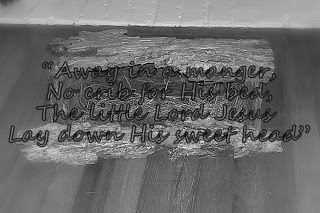 “Away in a manger,
No crib for His bed,
The little Lord Jesus
Lay down His sweet head”